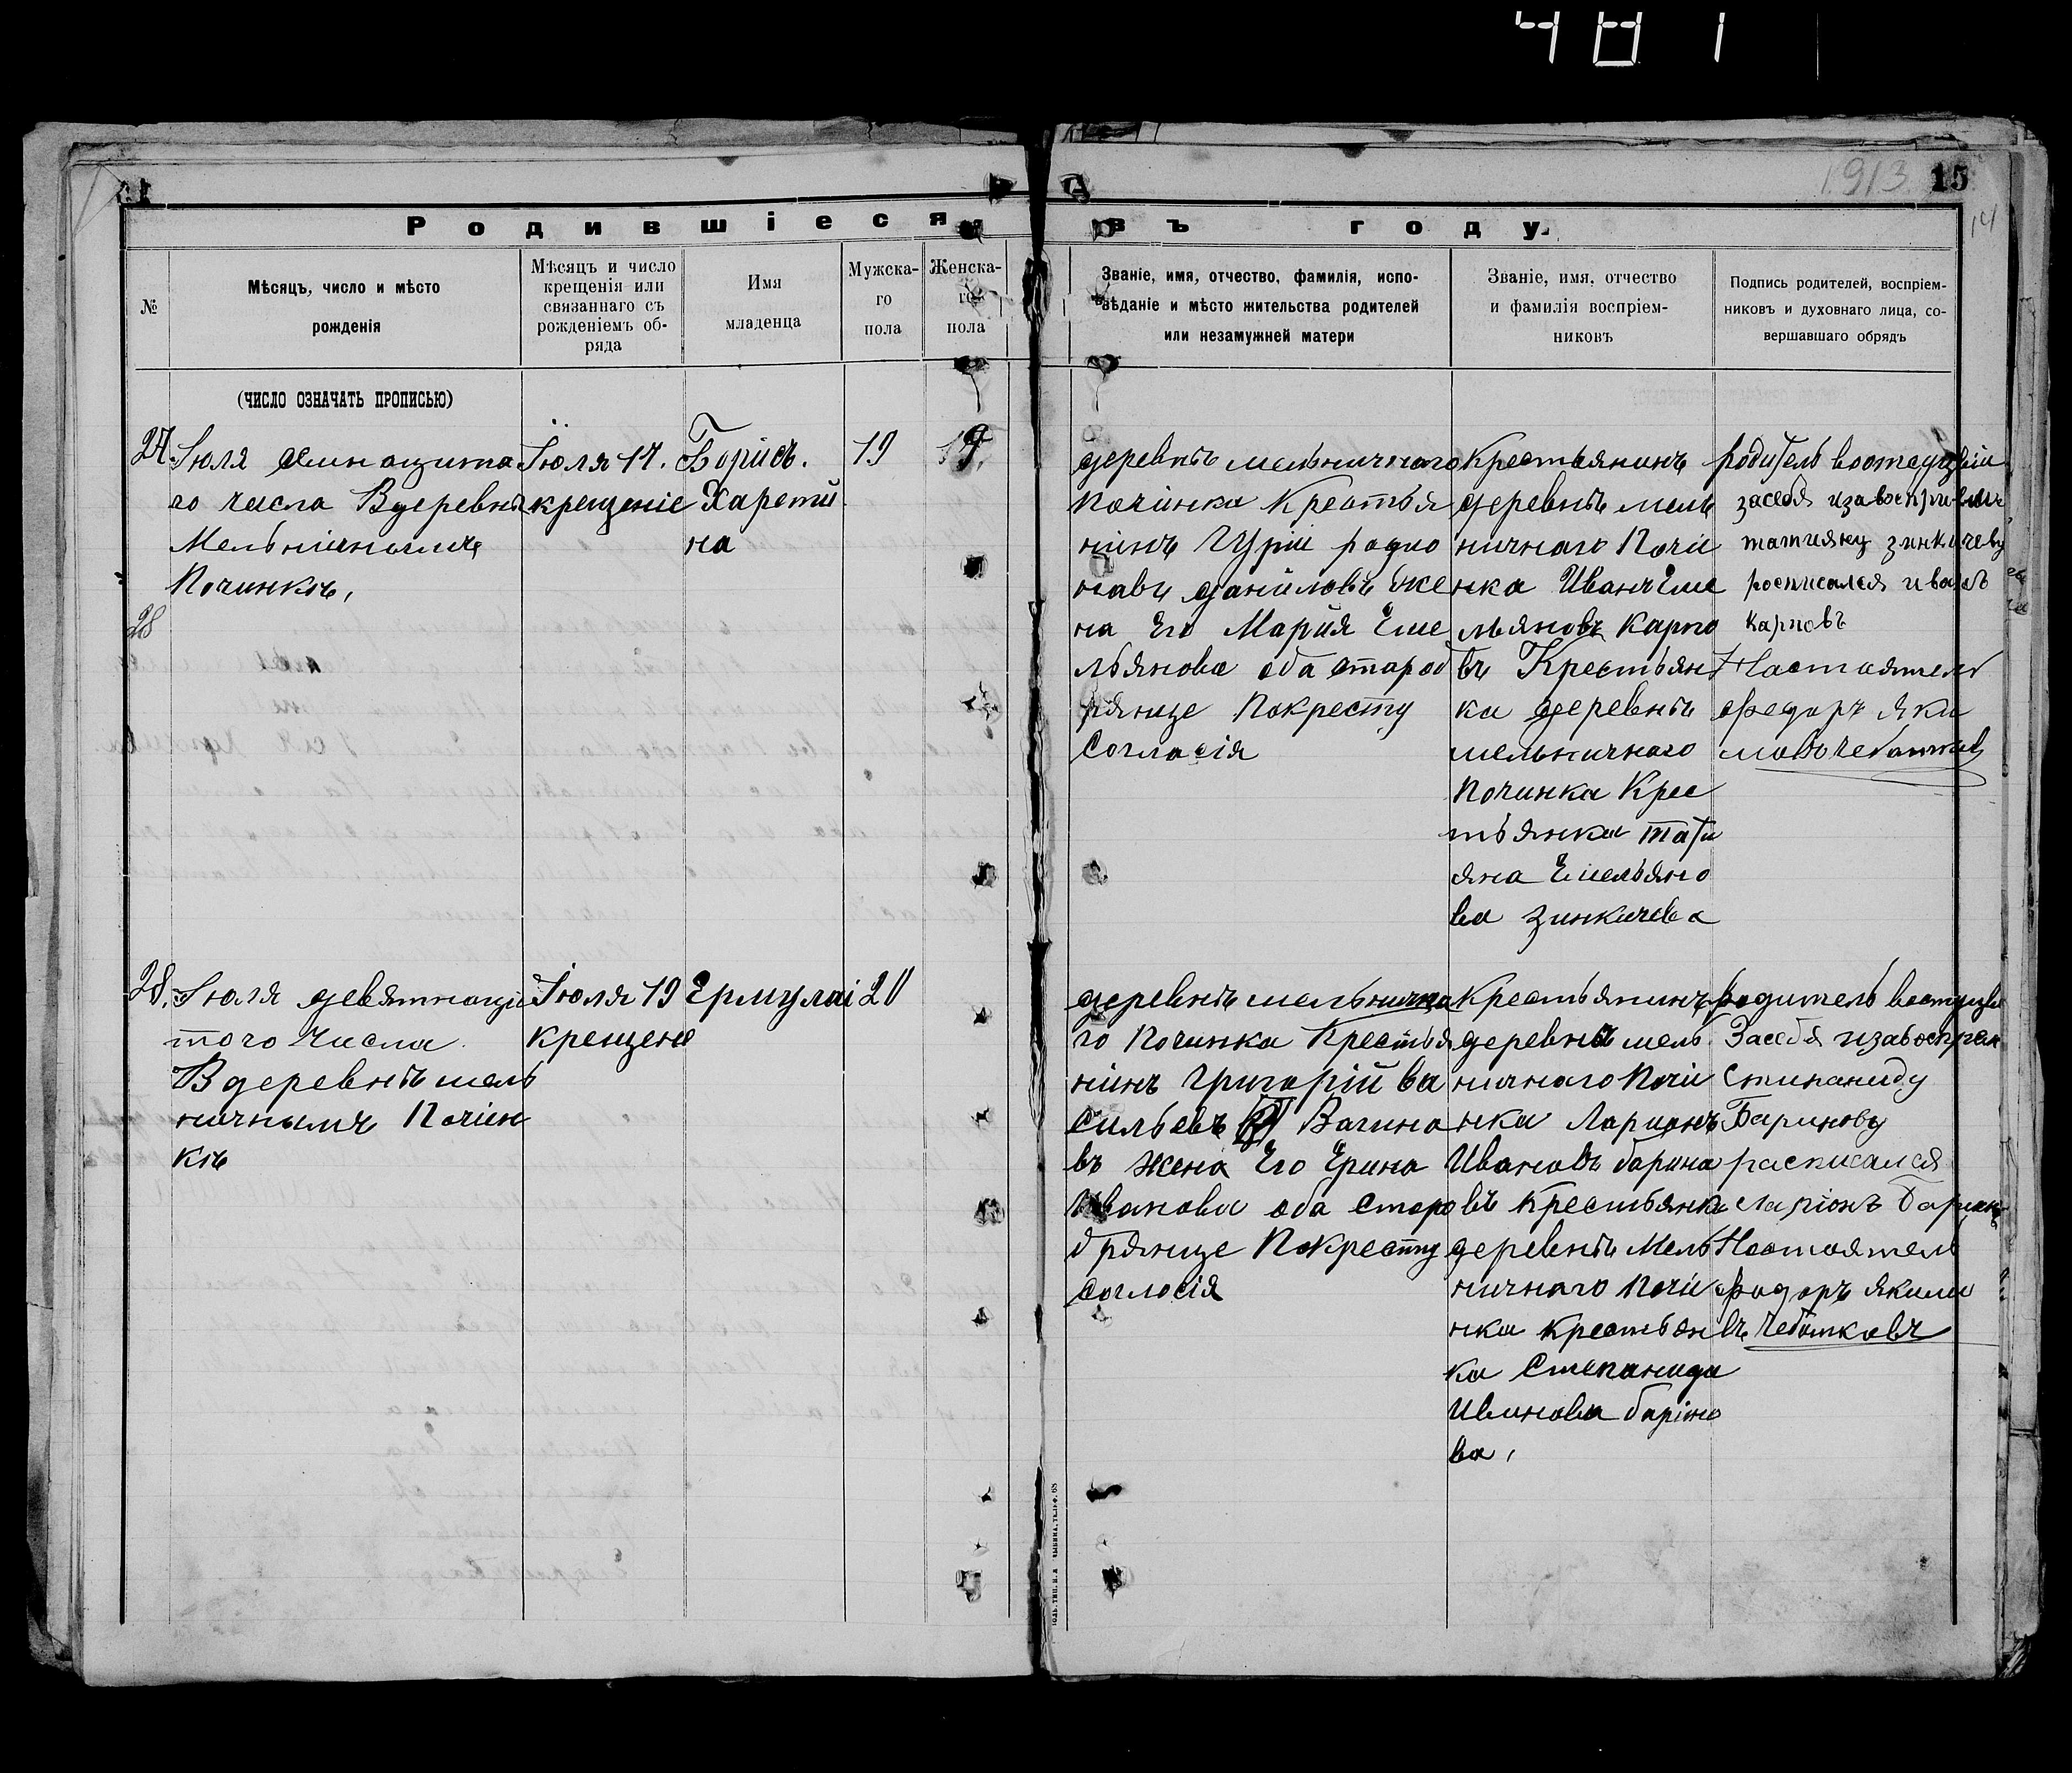 481
1913
15
14
Ч. I
Родившіеся
въ году.
№
Мѣсяцъ, число и мѣсто
рожденія
Мѣсяцъ и число
крещенія или
связаннаго съ
рожденіемъ об-
ряда
Имя
младенца
Мужска-
го
пола
Женска-
го
пола
Званіе, имя, отчество, фамилія, испо-
вѣданіе и мѣсто жительства родителей
или незамужней матери
Званіе, имя, отчество
и фамилія воспріем-
никовъ
Подпись родителей, воспріем-
никовъ и духовнаго лица, со-
вершавшаго обрядъ
(ЧИСЛО ОЗНАЧАТЬ ПРОПИСЬЮ)
27
Іюля
го числа Вдеревнѣ
Мельничномъ
Починкѣ,
28
Іюля 17.
крещеніе
Борисъ.
Харети
на
19
деревнѣ мельничного
починка Крестья
нинъ Гурій родио
навъ даниловъ Же
на Его Марія Еме
льянова оба староб
рянце Покресту
Согласія
Крестьянинъ
деревнѣ мель
ничнаго Почи
нка Иванъ Еме
льяновъ Карпо
въ Крестьян
ка деревнѣ
мельничного
Починка Крес
тьянка Тати
яна Емельяно
ва Зинкичева
родитель
засебя изавосприемн
татияну зинкичеву
росписался иванъ
Карповъ
Настоятель
Федоръ Яки
мовъ Чеботковъ
28.
Іюля девятнаци
того Числа
Вдеревнѣ мель
ничнымъ Почин
кѣ
Іюля 19
крещене
Ермулаі
20
деревнѣ мельнична
го Починка Крестья
нинъ Григорій Ва
сильевъ Вагино
въ Жена Его Ерина
Иванова оба старо
брянце Покресту
Соглосія
Крестьянинъ
деревнѣ мель
ничнаго Почи
нка Ларионъ
Ивановъ барино
въ Крестьянка
деревнѣ Мель
ничнаго Почи
нка крестьян
ка Степанида
Иванова баріно
ва,
родитель
Засебя изавоспрем
Стипаниду
Баринову
расписался
Ларіонъ Баринъ
Настоятель
Федоръ Якимо
въ Чеботковъ